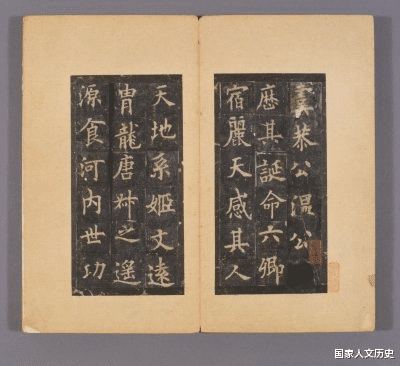 虞恭公温公
歷其誕命六卿
宿麗天感其人
天地系姬文遠
胄龍唐叔之遥
源食河内世功
国家人文历史